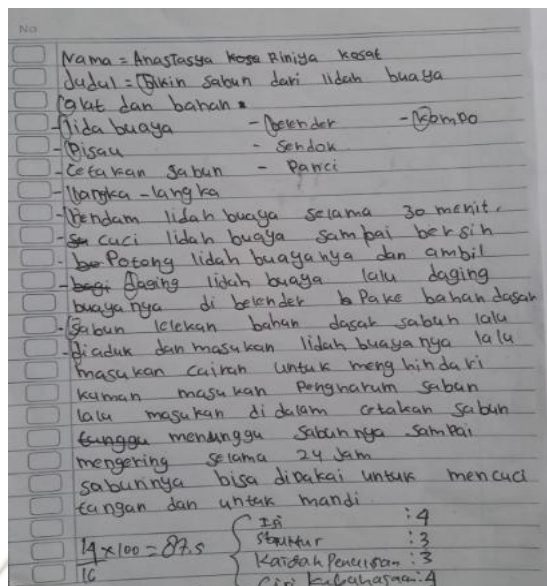 No
Nama = Anastasya Riniya kosat
Judul = Bikin sabun dari lidah buaya
alat dan bahan.
- lida buaya - belender - kompo
- Pisau - Sendok
- Cetakan sabun - Panci
- langka - langka
- Rendam lidah buaya selama 30 menit.
- cuci lidah buaya sampai bersih
- Potong lidah buayanya dan ambil
- daging lidah buaya lalu daging
buayanya di belender Pake bahan dasar
- Sabun lelekan bahan dasar sabun lalu
- diaduk dan masukan lidah buayanya lalu
masukan cairan untuk menghindari
kuman masukan Pengharum sabun
lalu masukan di dalam cetakan sabun
menunggu sabunnya sampai
mengering selama 24 jam
sabunnya bisa dipakai untuk mencuci
tangan dan untuk mandi.
14 x 100 = 87.5
16
Isi : 4
Struktur : 3
Kaidah Penulisan : 3
Ciri Kebahasaan : 4